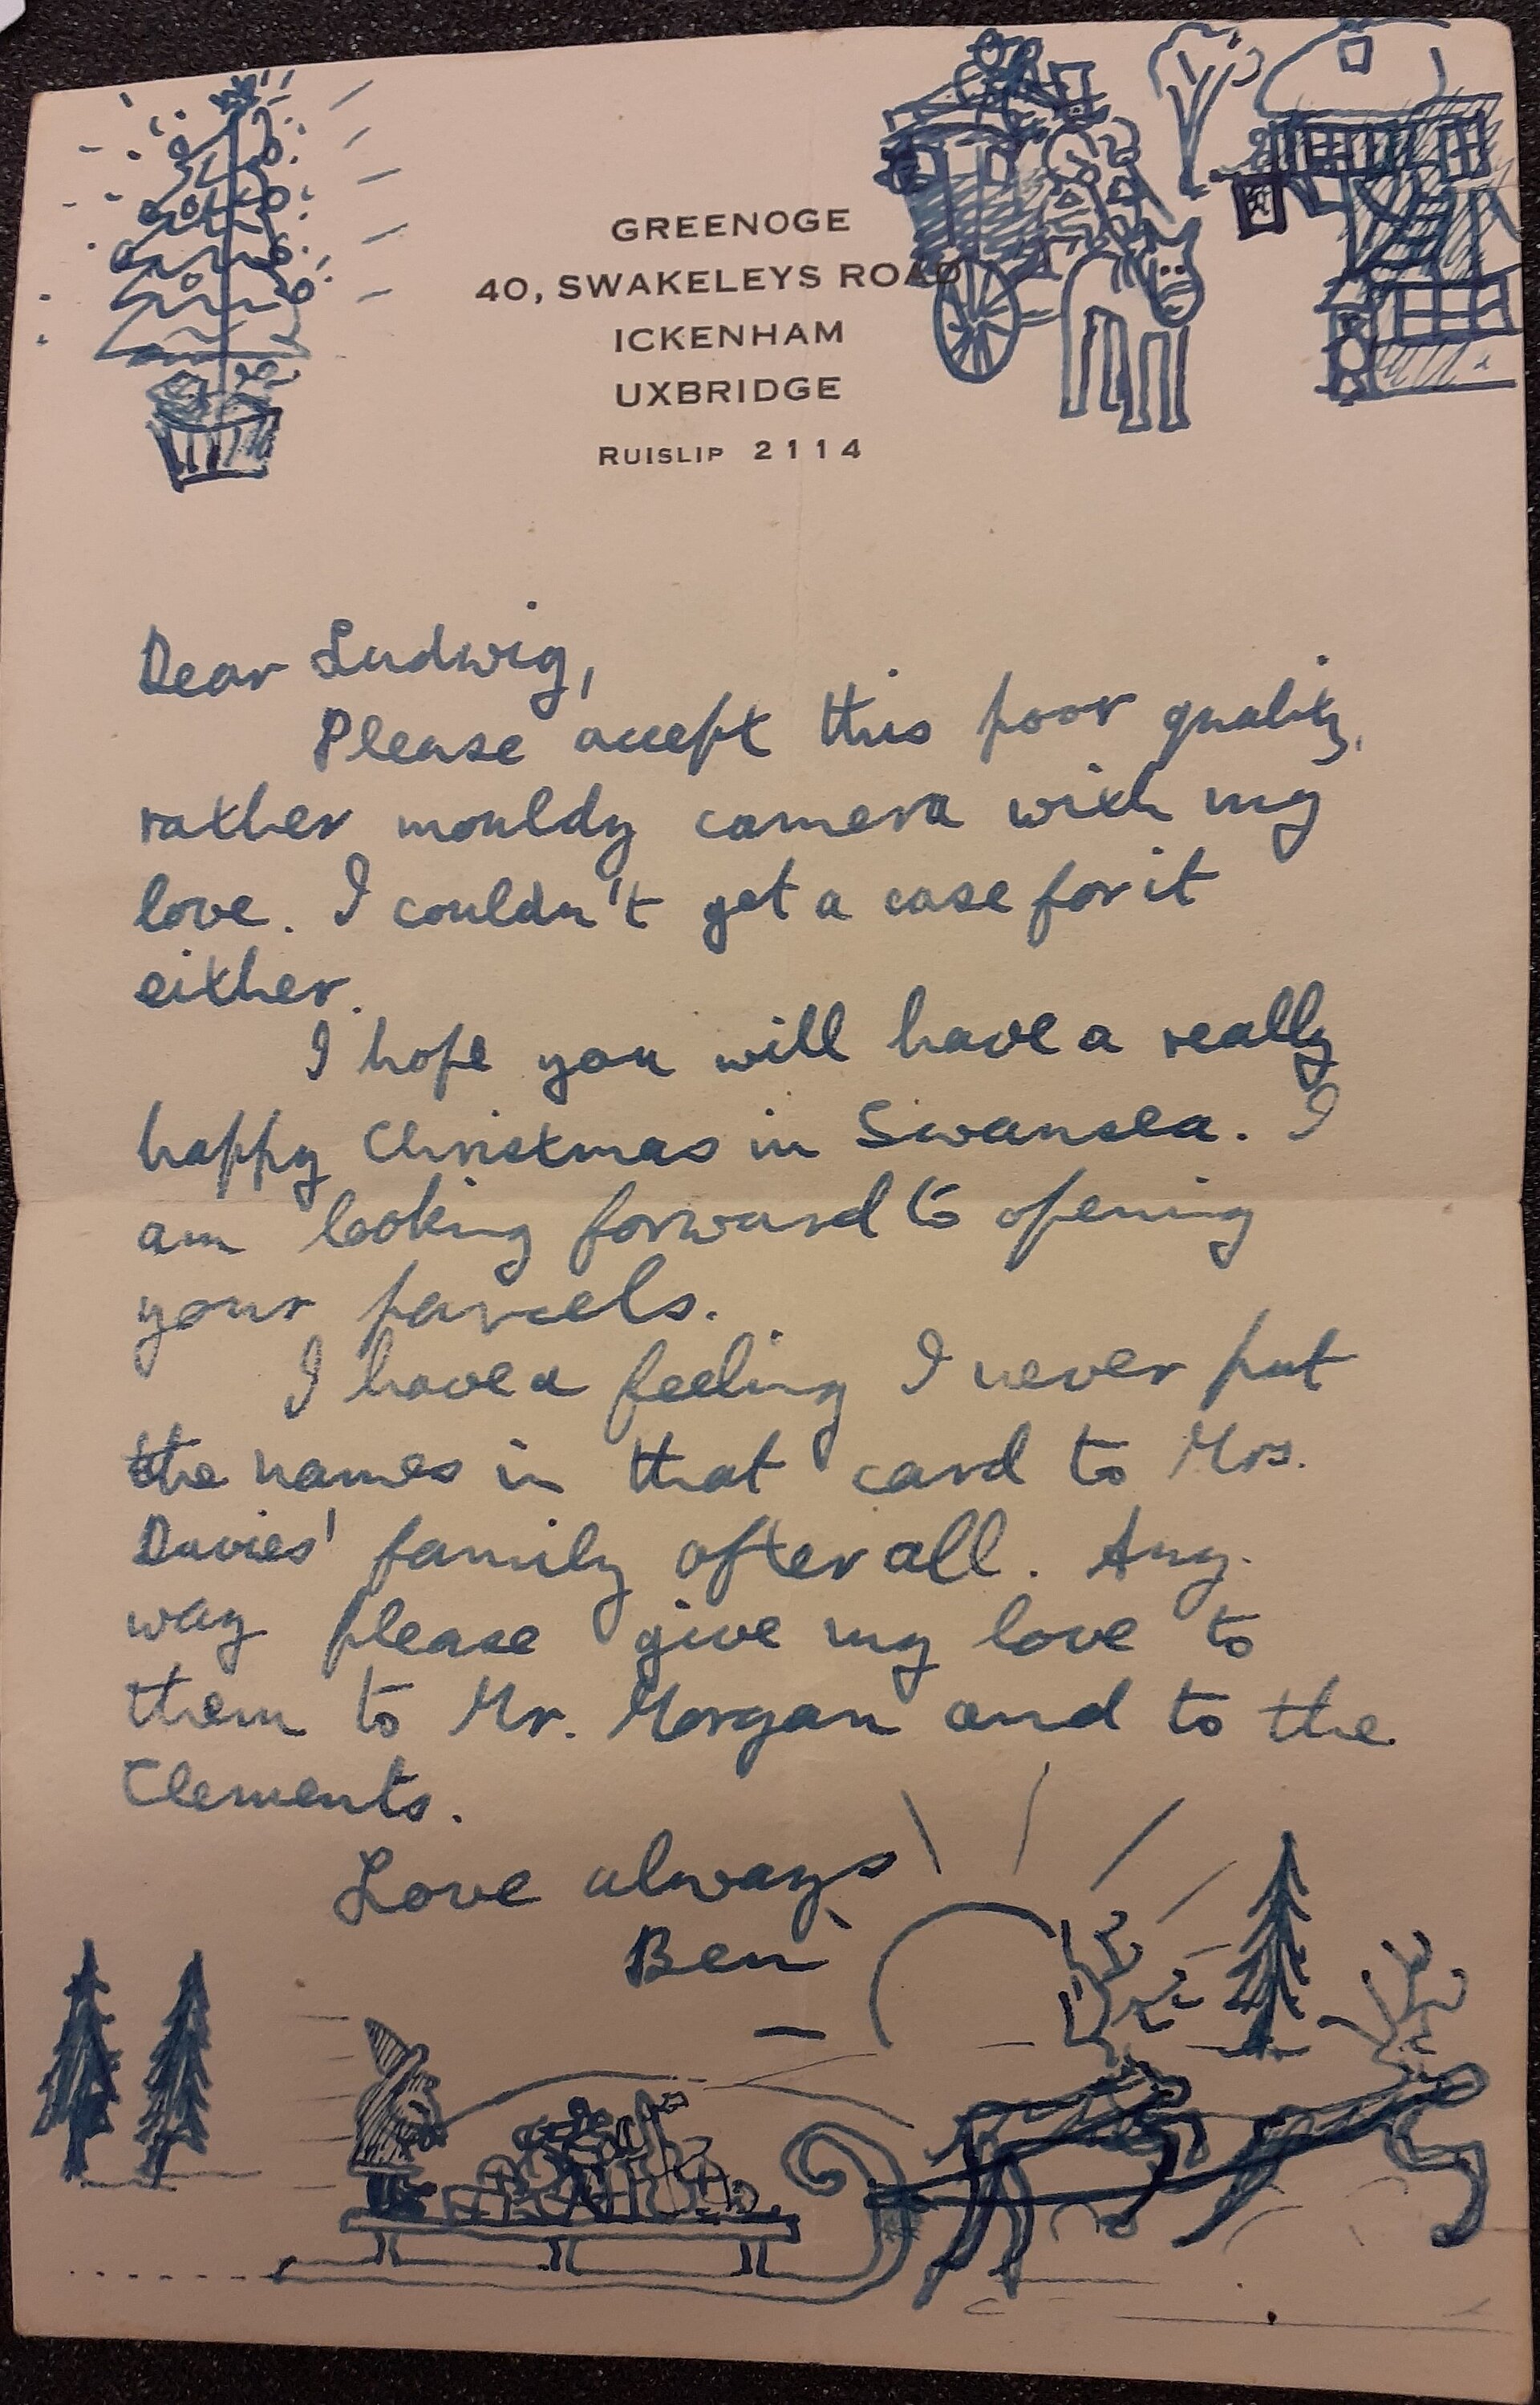 GREENOGE
40, SWAKELEYS ROAD
ICKENHAM
UXBRIDGE
RUISLIP 2114
Dear Ludwig,
Please accept this poor quality,
rather mouldy camera with my
love. I couldn't get a case for it
either.
I hope you will have a really
happy Christmas in Swansea. I
am looking forward to opening
your parcels.
I have a feeling I never put
the names in that card to Mrs.
Davies' family after all. Any-
way please give my love to
them to Mr. Morgan and to the
Clements.
Love always
Ben